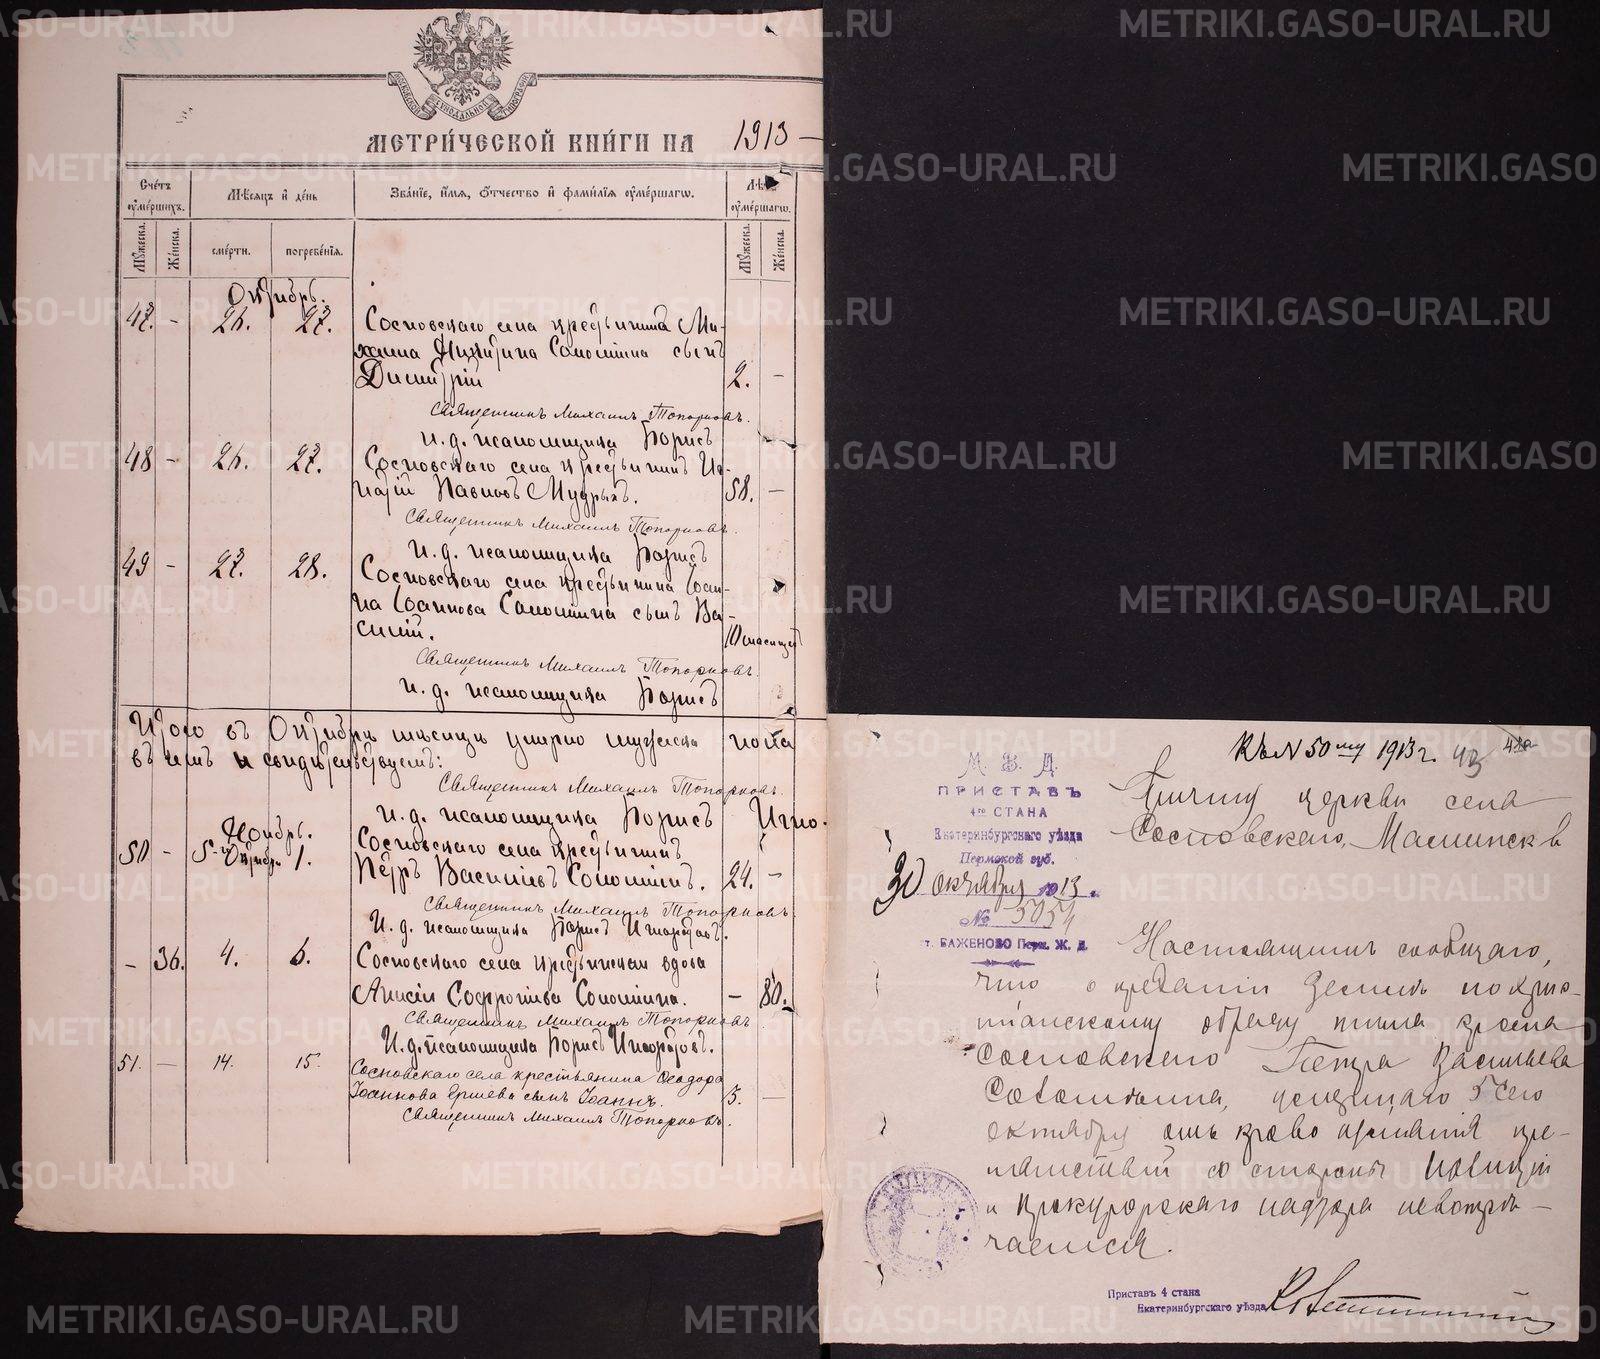 МЕТРИ́ЧЕСКОЙ КНИ́ГИ НА 1913
Сче́тъ оу҆ме́ршихъ.
Мѣ́сяцъ и҆ де́нь
Зва́нїе, и҆́мя, ѻ҆́тчество и҆ фами́лїя оу҆ме́ршагѡ.
Лѣ́та оу҆ме́ршагѡ.
Мꙋ́жеска.
Же́нска.
сме́рти.
погребе́нїя.
Мꙋ́жеска.
Же́нска.
Октябрь.
47. - 26. 27. Сосновскаго села крестьянина Ми-
хаила Никитина Соломина сынъ
Димитрій 2. -
Священникъ Михаилъ Топорковъ.
И. д. псаломщика Борисъ
48 - 26. 27. Сосновскаго села крестьянинъ Иг-
натій Павловъ Мудрыхъ. 58. -
Священникъ Михаилъ Топорковъ.
И. д. псаломщика Борисъ
49 - 27. 28. Сосновскаго села крестьянина Іоан-
на Іоаннова Соломина сынъ Ва-
силій. 10 месяцев
Священникъ Михаилъ Топорковъ.
И. д. псаломщика Борисъ
Итого въ Октябрѣ мѣсяцѣ умерло мужска пола
въ чемъ и свидѣтельствуемъ:
Священникъ Михаилъ Топорковъ.
И. д. псаломщика Борисъ Игно-
Ноябрь.
50 - 5-го Октября 1. Сосновскаго села крестьянинъ
Петръ Василіевъ Соломинъ. 24. -
Священникъ Михаилъ Топорковъ.
И. д. псаломщика Борисъ
- 36. 4. 6. Сосновскаго села крестьянская вдова
Анисія Софронова Соломина. - 80.
Священникъ Михаилъ Топорковъ
И. д. псаломщика Борисъ
51. - 14. 15. Сосновскаго села крестьянина Ѳеодора
Іоаннова Ершева сынъ Іоаннъ. 3. -
Священникъ Михаилъ Топорковъ.
Къ N 50му 1913 г. 43
М. В. Д.
ПРИСТАВЪ
4го СТАНА
Екатеринбургскаго уѣзда
Пермской губ.
30 октября 1913 г.
№ 5054
ст. БАЖЕНОВО Перм. Ж. Д.
Причту церкви села
Сосновскаго, Маминск в
Настоящимъ сообщаю,
что о преданіи земли по хрис-
тіанскому обряду тѣла кр села
Сосновскаго Петра Васильева
Соломина, умершаго 5 сего
октября отъ
пятствій со стороны полиціи
и прокурорскаго надзора невстрѣ-
чается.
Приставъ 4 стана
Екатеринбургскаго уѣзда
METRIKI.GASO-URAL.RU